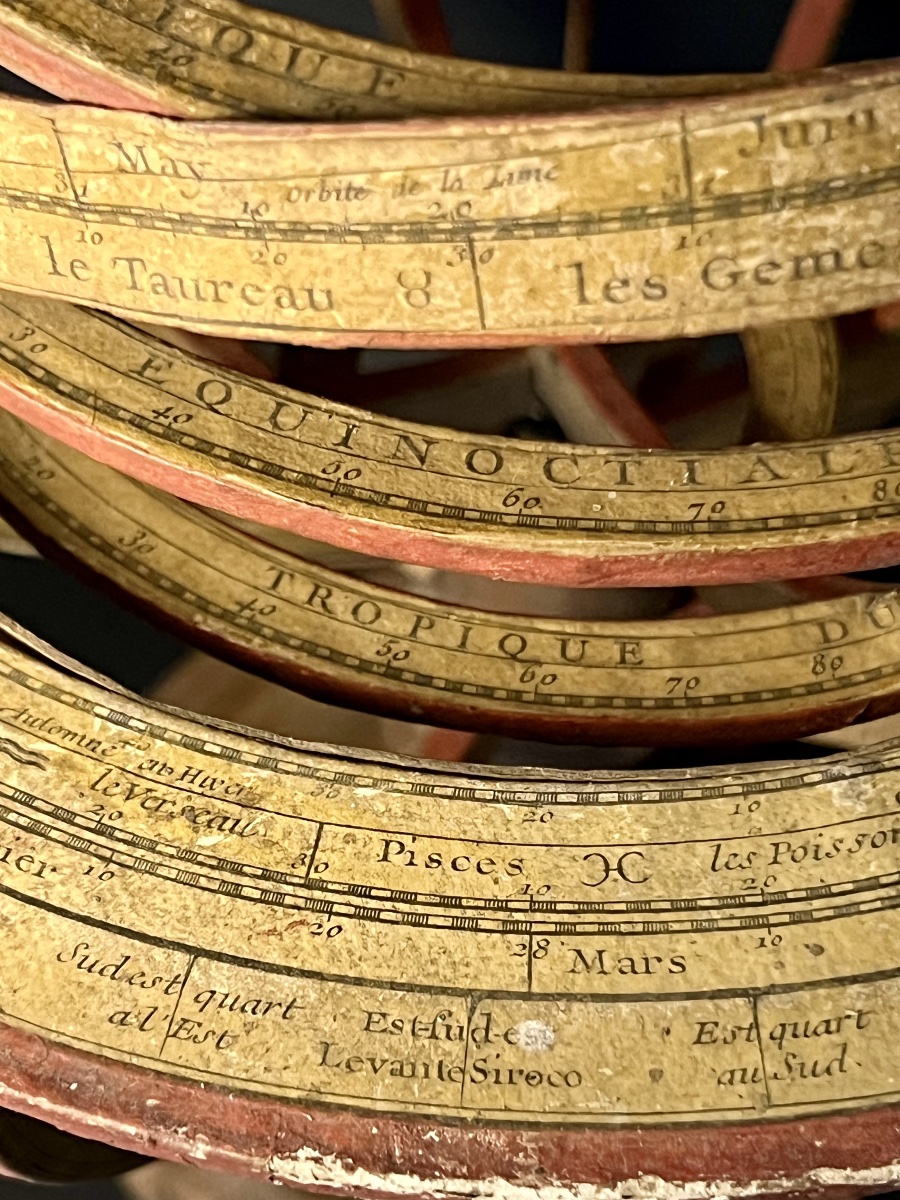 QUE
40
May Juin
Orbite de la Lune
31 10 20 31
10 20 30 10
le Taureau ♉ les Geme
EQUINOCTIALE
30 40 50 60 70 80
TROPIQUE DU
20 30 40 50 60 70 80
30 20 10
ab Hiver
le Verseau Pisces ♓ les Poisson
20 30 10 20
ier 10 20 28 Mars 10
Sud est quart Est-sud-est Est quart
a l'Est Levante Siroco au Sud.